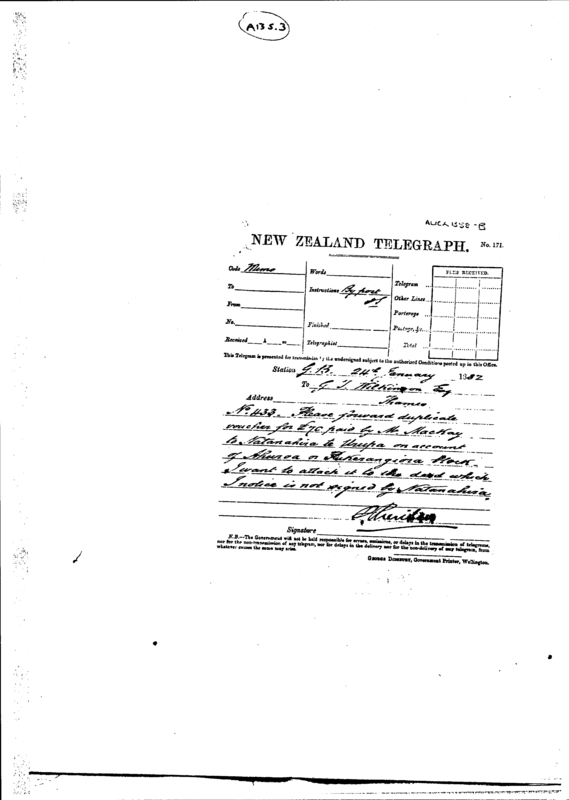 A13 S.3
AUCK 1358-B
NEW ZEALAND TELEGRAPH. No. 171.
Code Memo
Words
FEES RECEIVED.
To
Instructions By post
Telegram
Other Lines
From
Porterage
No.
Finished
Postage, &c.
Received
Telegraphist
Total
This Telegram is presented for transmission by the undersigned subject to the authorized Conditions posted up in this Office.
Station G.B. 24th January 1882
To G. T. Wilkinson Esq
Address Thames
No. 433. Please forward duplicate
voucher for £70 paid by Mr. Mackay
to Natanahira te on account
of Ahuroa or Block
I want to attach it to the deed which
I notice is not signed by Natanahira
P Sheridan
Signature
N.B.—The Government will not be held responsible for errors, omissions, or delays in the transmission of telegrams,
nor for the non-transmission of any telegram, nor for delays in the delivery nor for the non-delivery of any telegram, from
whatever causes the same may arise.
GEORGE DIDSBURY, Government Printer, Wellington.